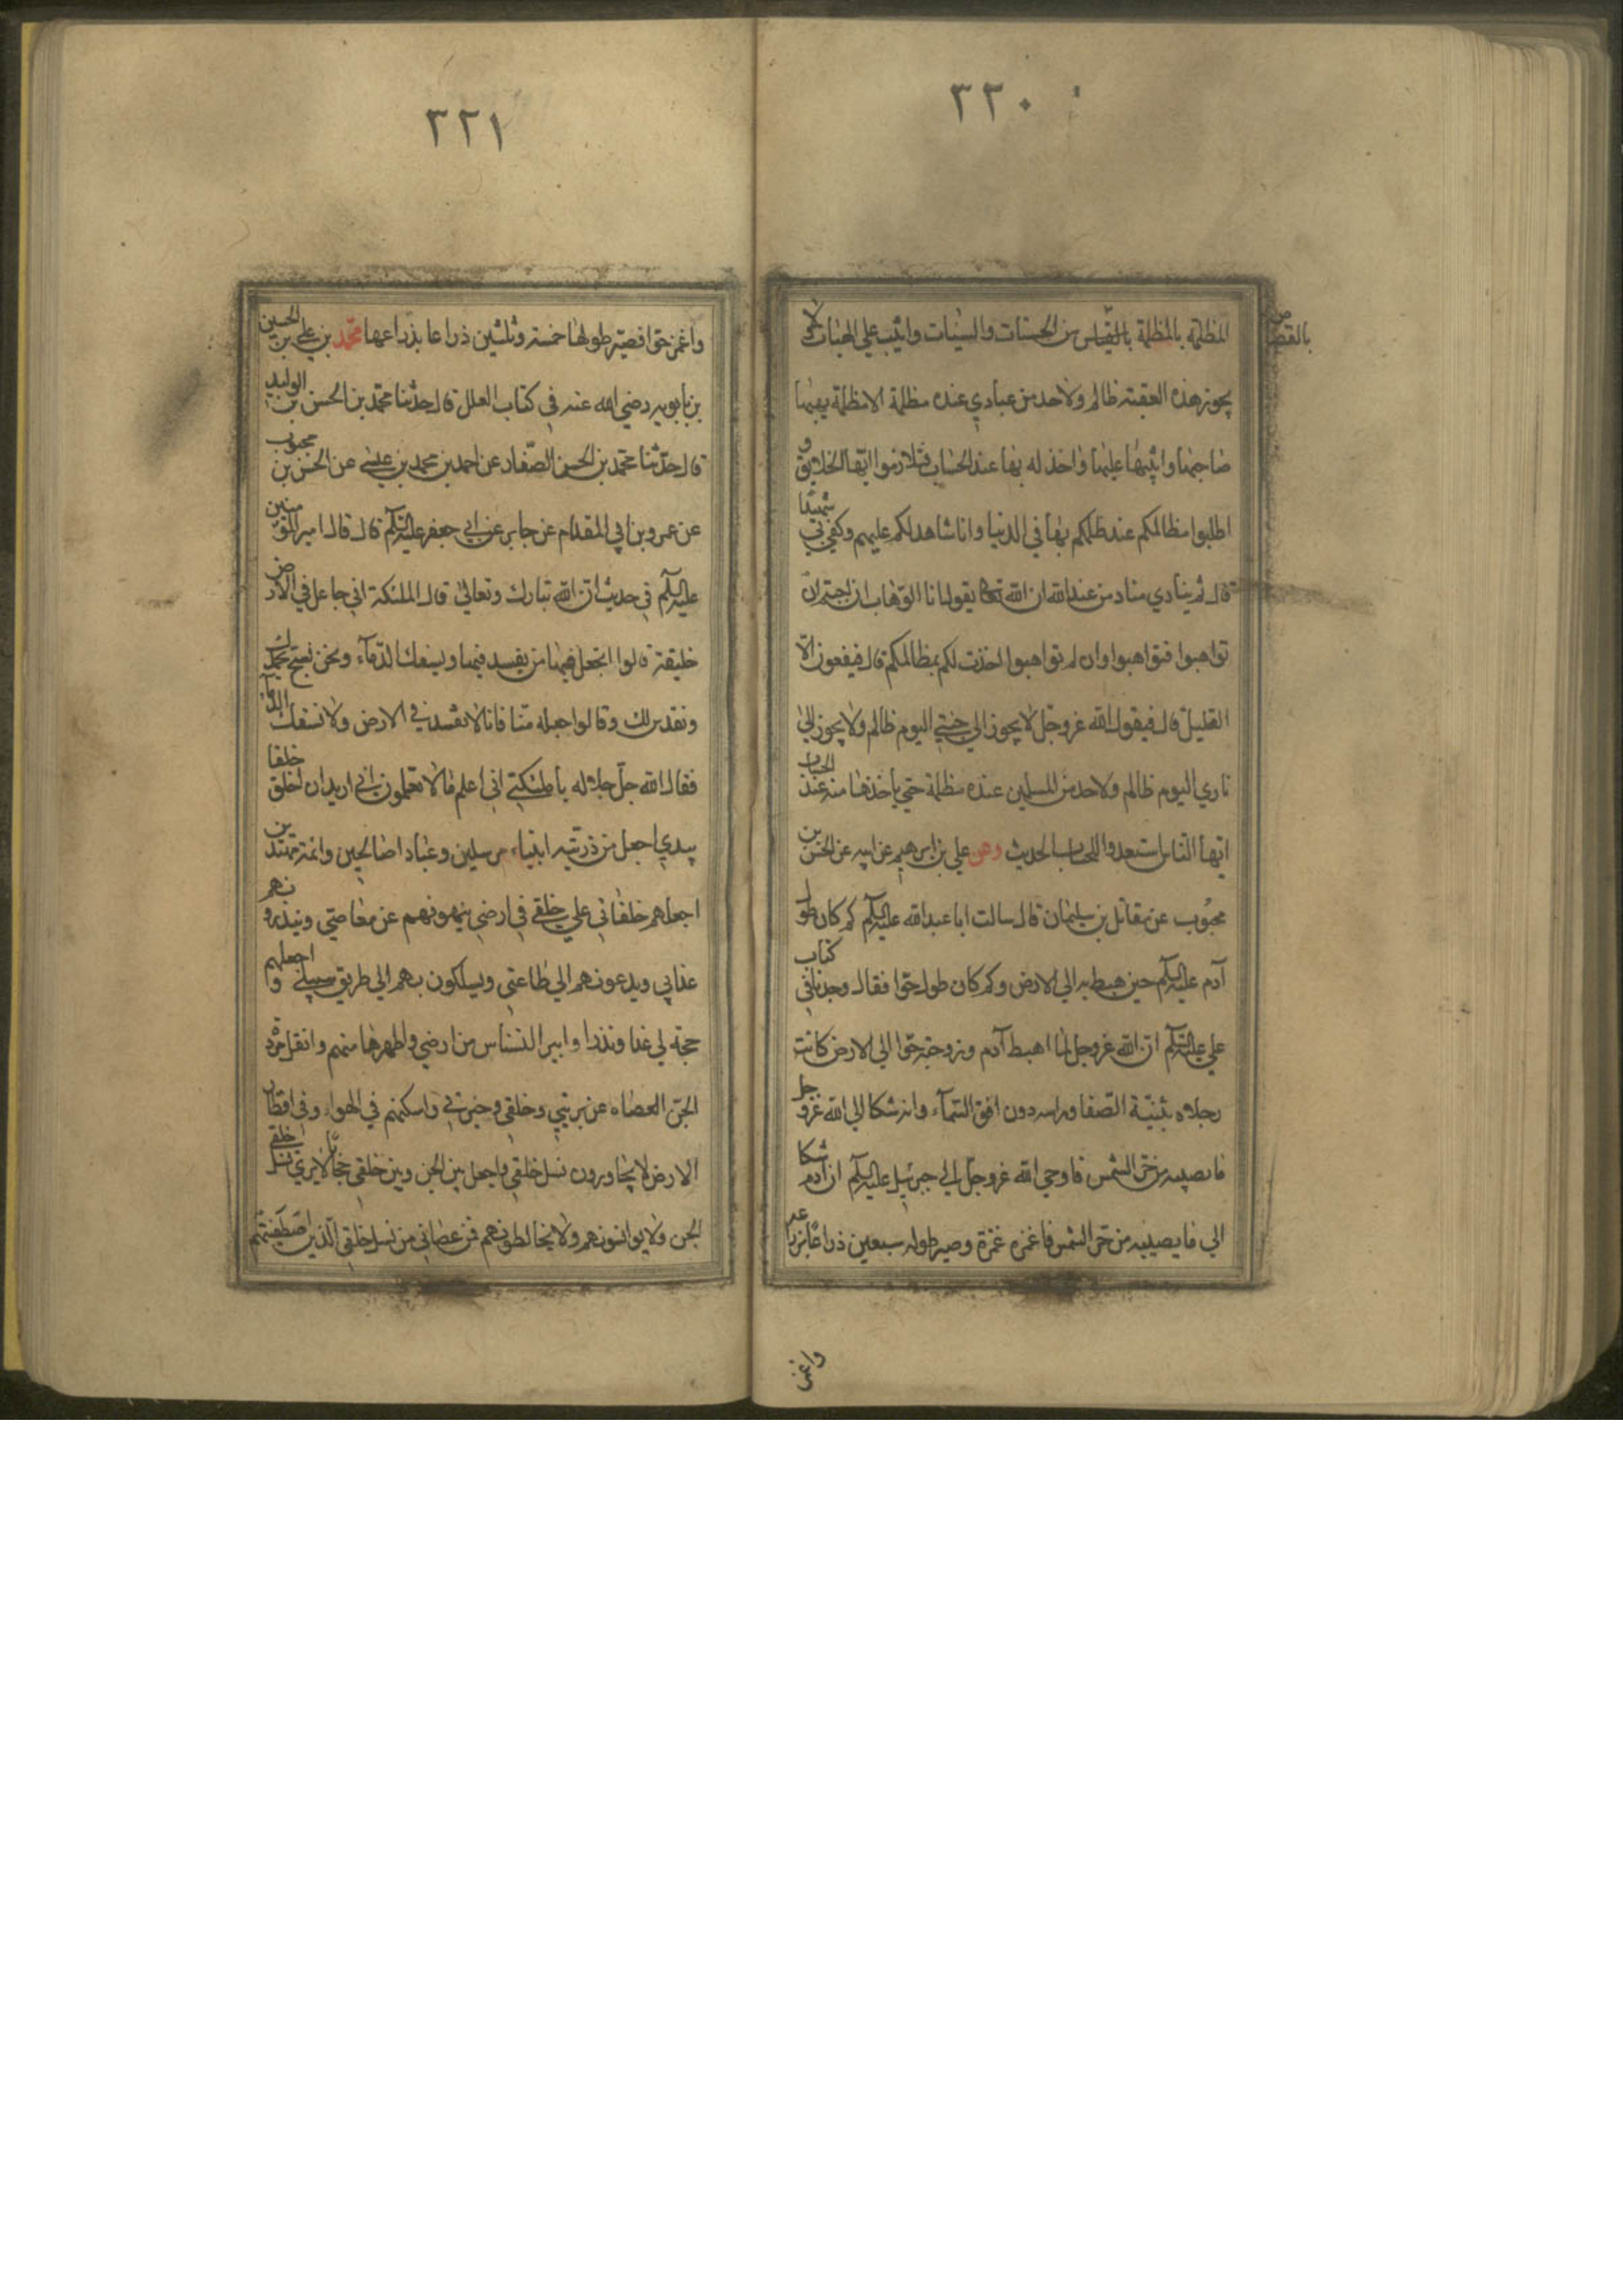 ٣٢٠
المظلمة بالمظلمة بالقياس من الحسنات والسيئات واثيب علي الهبات ولا
بالقصاص
يجوز هذه العقبة ظالم ولاحد من عبادي عنده مظلمة الا مظلمة يهبها
صاحبها واثيبها عليها واخذ له بها عند الحساب فتلازموا ايها الخلايق و
اطلبوا مظالمكم عند ظلمكم بها في الدنيا وانا شاهد لكم عليهم وكفي بي شهيدا
قال ثم ينادي مناد من عند الله ان الله تعا يقول انا الوهاب ان احببتم ان
تواهبوا فتواهبوا وان لم تواهبوا اخذت لكم بمظالمكم قال فيفعون الا
القليل قال فيقول الله عزوجل لا يجوز الي جنتي اليوم ظالم ولا يجوز الي
ناري اليوم ظالم ولاحد من المسلمين عنده مظلمة حتي ياخذها منه عند الحساب
ايها الناس استعدوا للحساب الحديث وعن علي بن ابرهيم عن ابيه عن الحسن بن
محبوب عن مقاتل بن سليمان قال سالت ابا عبدالله عليه السلام كم كان طول
آدم عليه السلام حين هبط به الي الارض وكم كان طول حوا فقال وجدنا في كتاب
علي عليه السلام ان الله عزوجل لما اهبط آدم وزوجته حوا الي الارض كانت
رجلاه بثنية الصفا وراسه دون افق السمآء وانه شكا الي الله عزو جل
ما يصيبه من حر الشمس فاوحي الله عزوجل الي جبرئيل عليه السلام ان آدم شكا
الي ما يصيبه من حر الشمس فاغمزه غمزة وصير طوله سبعين ذراعا بذراعه
واغمز
٣٢١
واغمز حوا فصير طولها خمسة وثلثين ذراعا بذراعها محمد بن علي بن الحسين
بن بابويه رضي الله عنه في كتاب العلل قال حدثنا محمد بن الحسن بن الوليد
قال حدثنا محمد بن الحسن الصفار عن احمد بن محمد بن عيسي عن الحسن بن محبوب
عن عمرو بن ابي المقدام عن جابر عن ابي جعفر عليه السلام قال قال امير المؤمنين
عليه السلام في حديث ان الله تبارك وتعالي قال للملئكة اني جاعل في الارض
خليفة قالوا اتجعل فيها من يفسد فيها ويسفك الدمآء ونحن نسبح بحمدك
ونقدس لك وقالوا اجعله منا فانا لا نفسد في الارض ولا نسفك الدمآء
فقال الله جل جلاله يا ملئكتي اني اعلم ما لا تعلمون اني اريد ان اخلق خلقا
بيدي اجعل من ذريته انبياء مرسلين وعبادا صالحين وائمة مهتدين
اجعلهم خلفائي علي خلقي في ارضي ينهونهم عن معاصي وينذرونهم
عذابي ويدعونهم الي طاعتي ويسلكون بهم الي طريق سبيلي واجعلهم
حجة لي عذرا ونذرا وابير النسناس من ارضي واطهرها منهم وانقل مردة
الجن العصاه عن بريتي وخلقي وخيرتي واسكنهم في الهواء وفي اقطار
الارض لا يجاورون نسل خلقي واجعل بين الجن وبين خلقي حجابا لا يري نسل خلقي
الجن ولا يوانسونهم ولا يخالطونهم فمن عصاني من نسل خلقي الذين اصطفيتهم